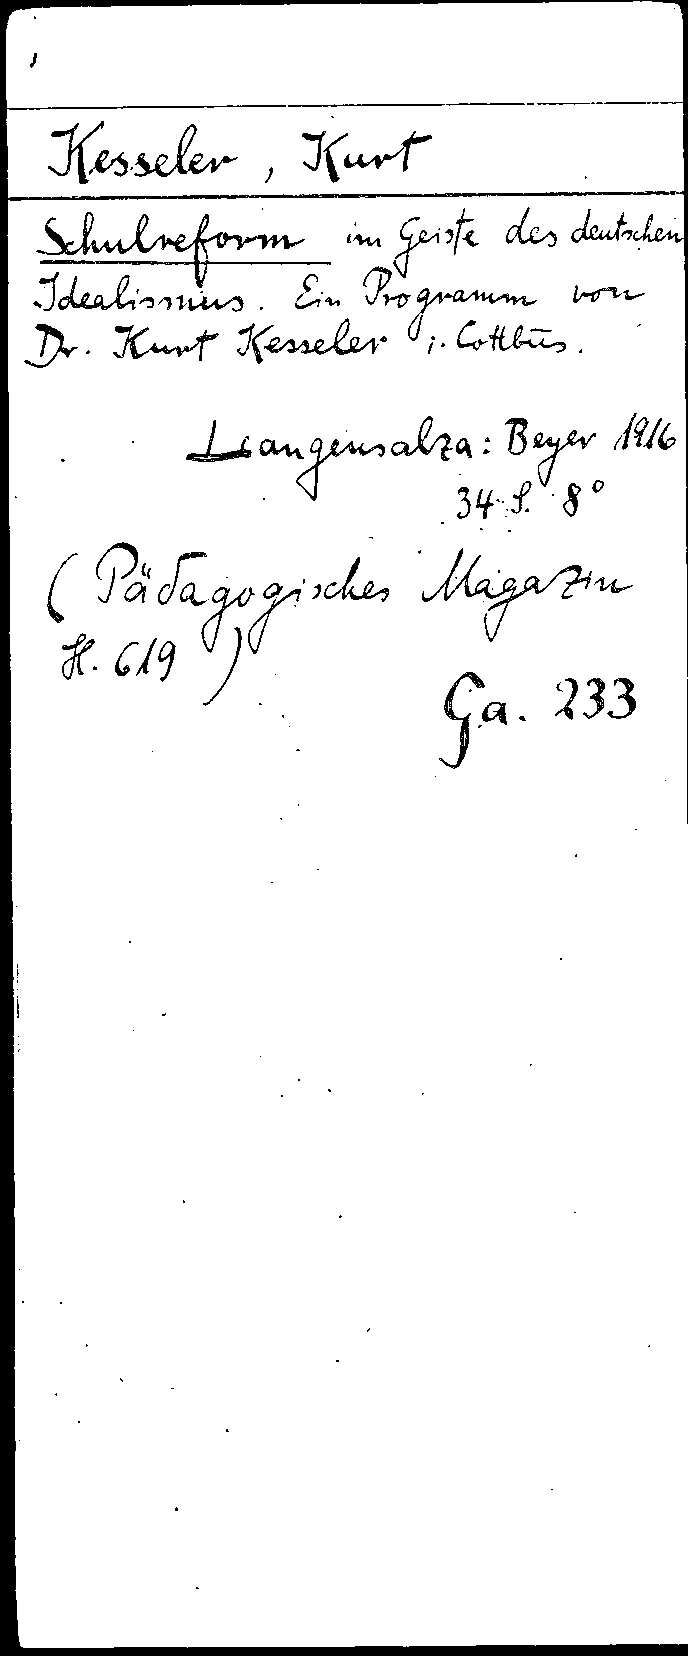 Kesseler, Kurt
Schulreform im Geiste des deutschen
Idealismus. Ein Programm von
Dr. Kurt Kesseler i. Cottbus.
Langensalza: Beyer 1916
34 S. 8°
(Pädagogisches Magazin
H. 619)
Ga. 233